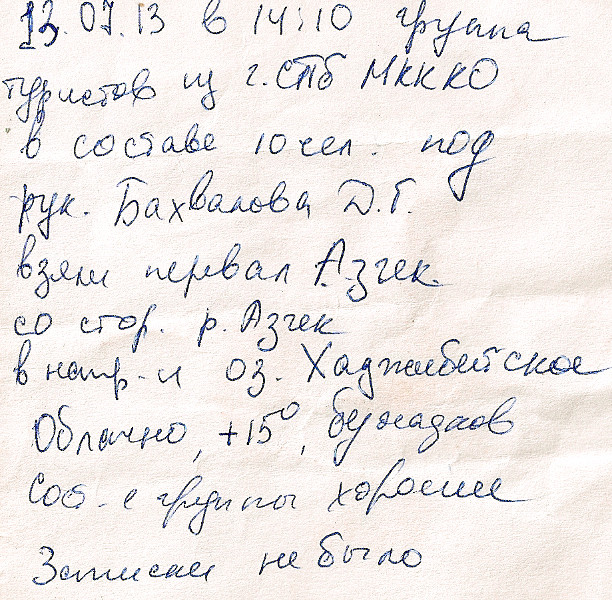 13.07.13 в 14:10 группа
туристов из г. СПб МККО
в составе 10 чел. под
рук. Бахвалова Д.Г.
взяли перевал Азгек
со стор. р. Азгек
в напр-и оз. Хаджибейское
Облачно, +15°, без осадков
Сос-е группы хорошее
Записки не было